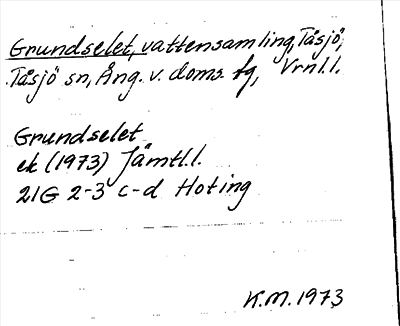 Grundselet, vattensamling, Tåsjö,
Tåsjö sn, Ång. v. doms. fg, Vrnl.l.
Grundselet
ek (1973) Jämtl.l.
21G 2-3 c-d Hoting
K.M. 1973